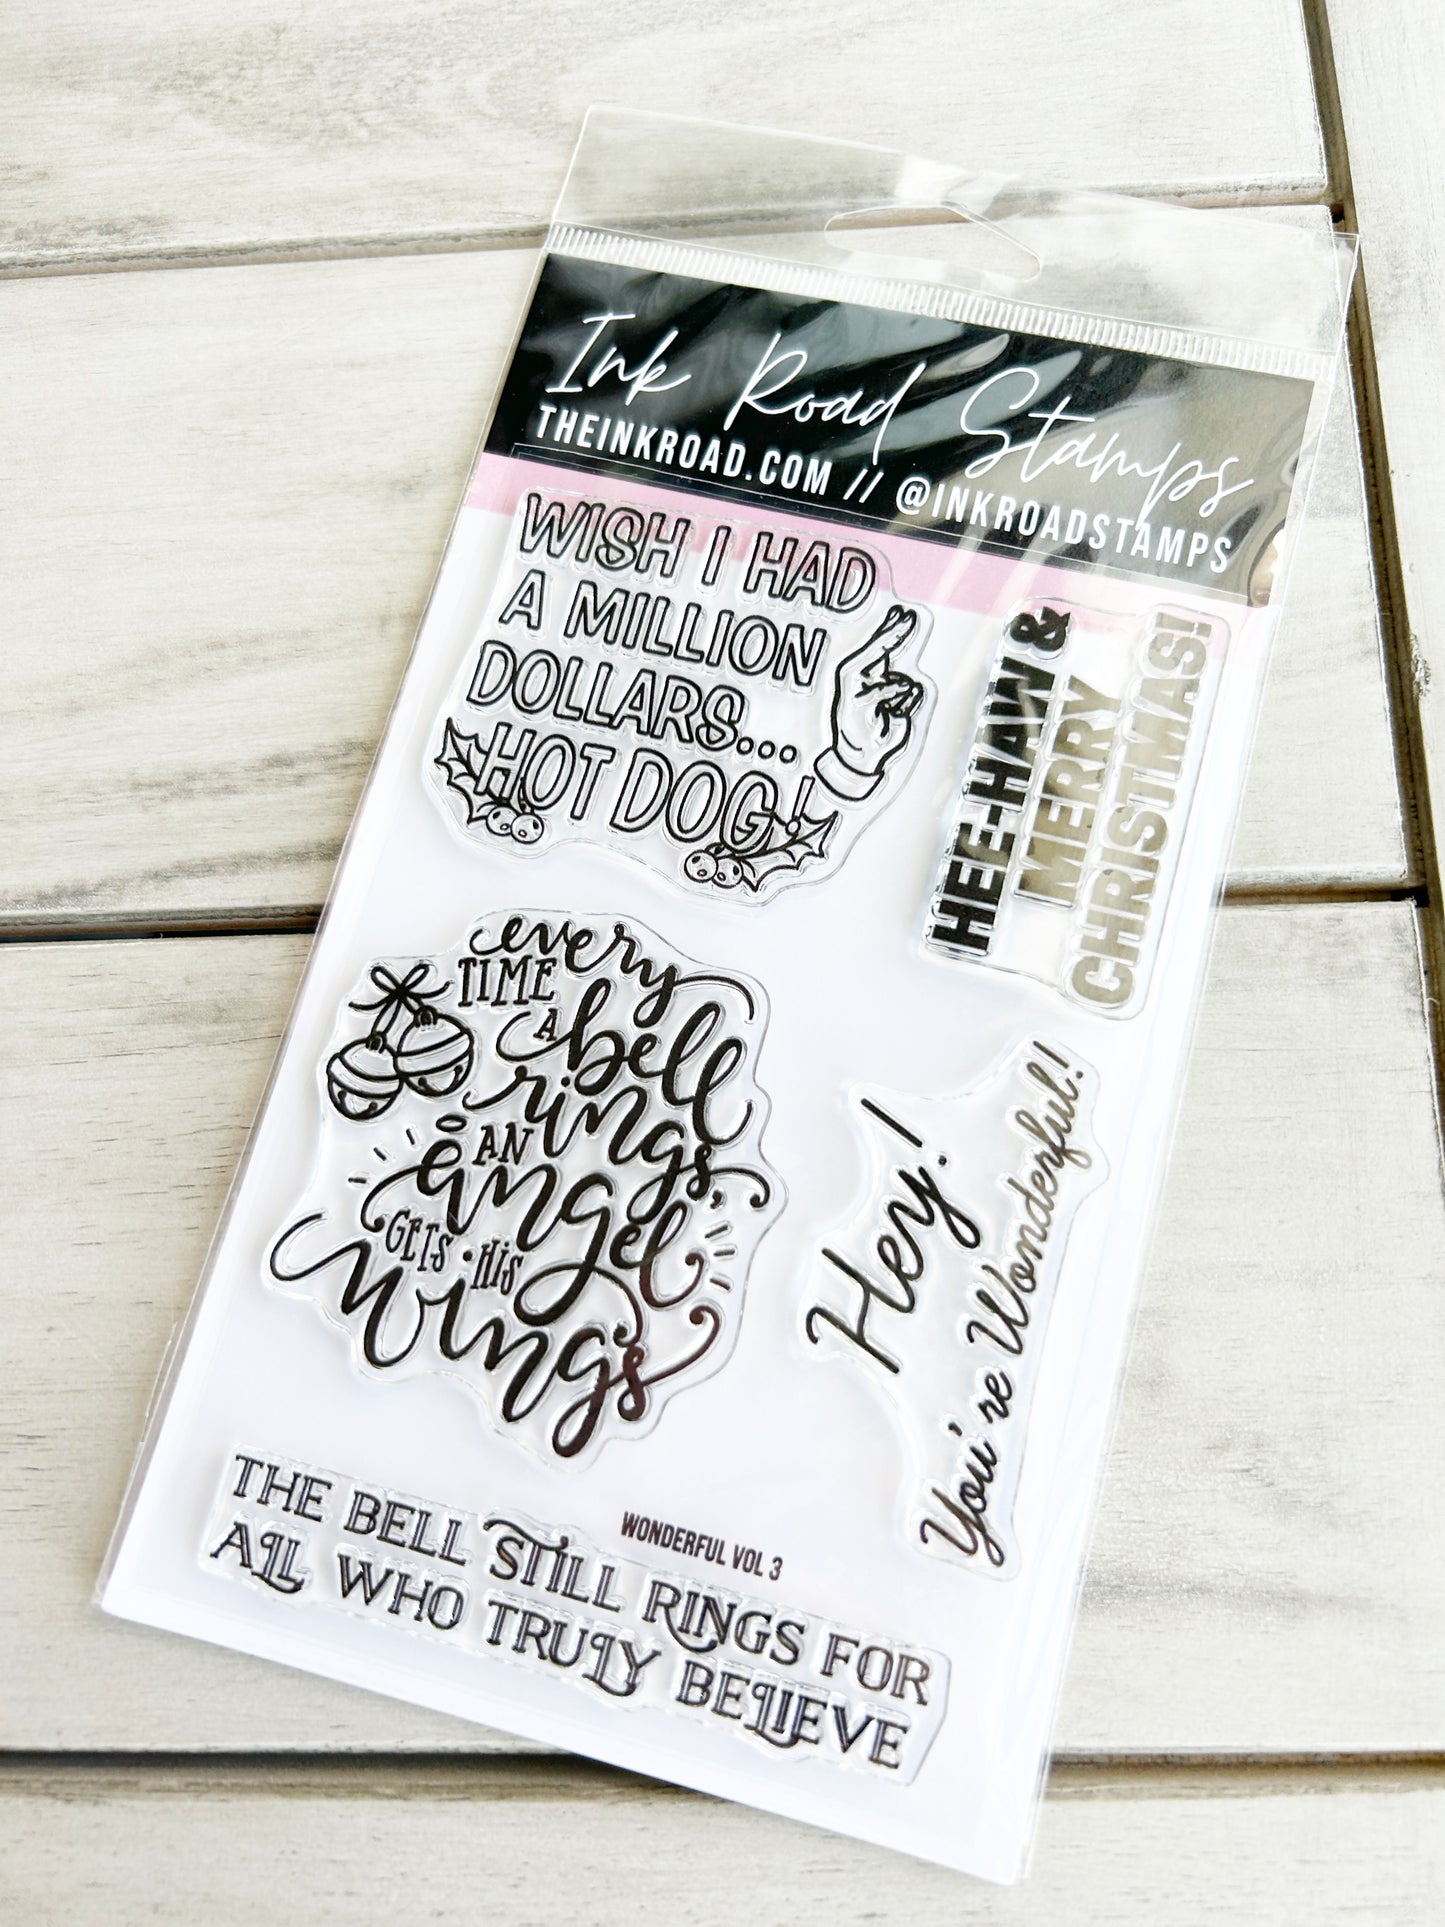 Ink Road Stamps
THEINKROAD.COM // @INKROADSTAMPS
WISH I HAD
A MILLION
DOLLARS...
HOT DOG!
HEE-HAW &
MERRY
CHRISTMAS!
every
TIME
A bell
rings,
AN
angel
GETS • HIS
wings
Hey!
You're Wonderful!
WONDERFUL VOL 3
THE BELL STILL RINGS FOR
ALL WHO TRULY BELIEVE